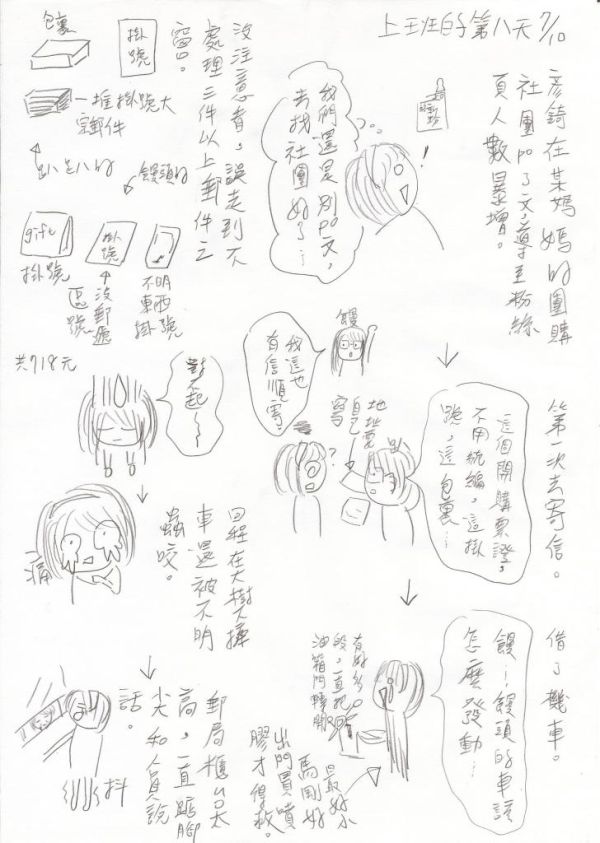 上班的第八天 7/10
彥錡在某媽媽的團購
社團po了文，導至粉絲
頁人數暴增。
！
我們還是別po文，
去找社團好了…
第一次去寄信。
這個開購票證，
不用統編，這掛
號，這包裹…
地址要
自己
寫
？
饅
我這也
有信順寄
對不起～
沒注意看，誤走到不
處理三件以上郵件之
窗。
包裹
掛號
一堆掛號大
宗郵件
趴趴的
饅頭的
gift
掛號
掛號
沒郵遞
區號
不明
東西
掛號
共718元
借了機車。
饅！饅頭的車該
怎麼發動…
有好多
段，一直把
油箱門轉開
最好小
馬剛好
出門買噴
膠才得救。
郵局櫃台太
高，一直踮腳
尖和人員說
話。
抖
回程在大樹下擇
車還被不明
蟲咬。
痛